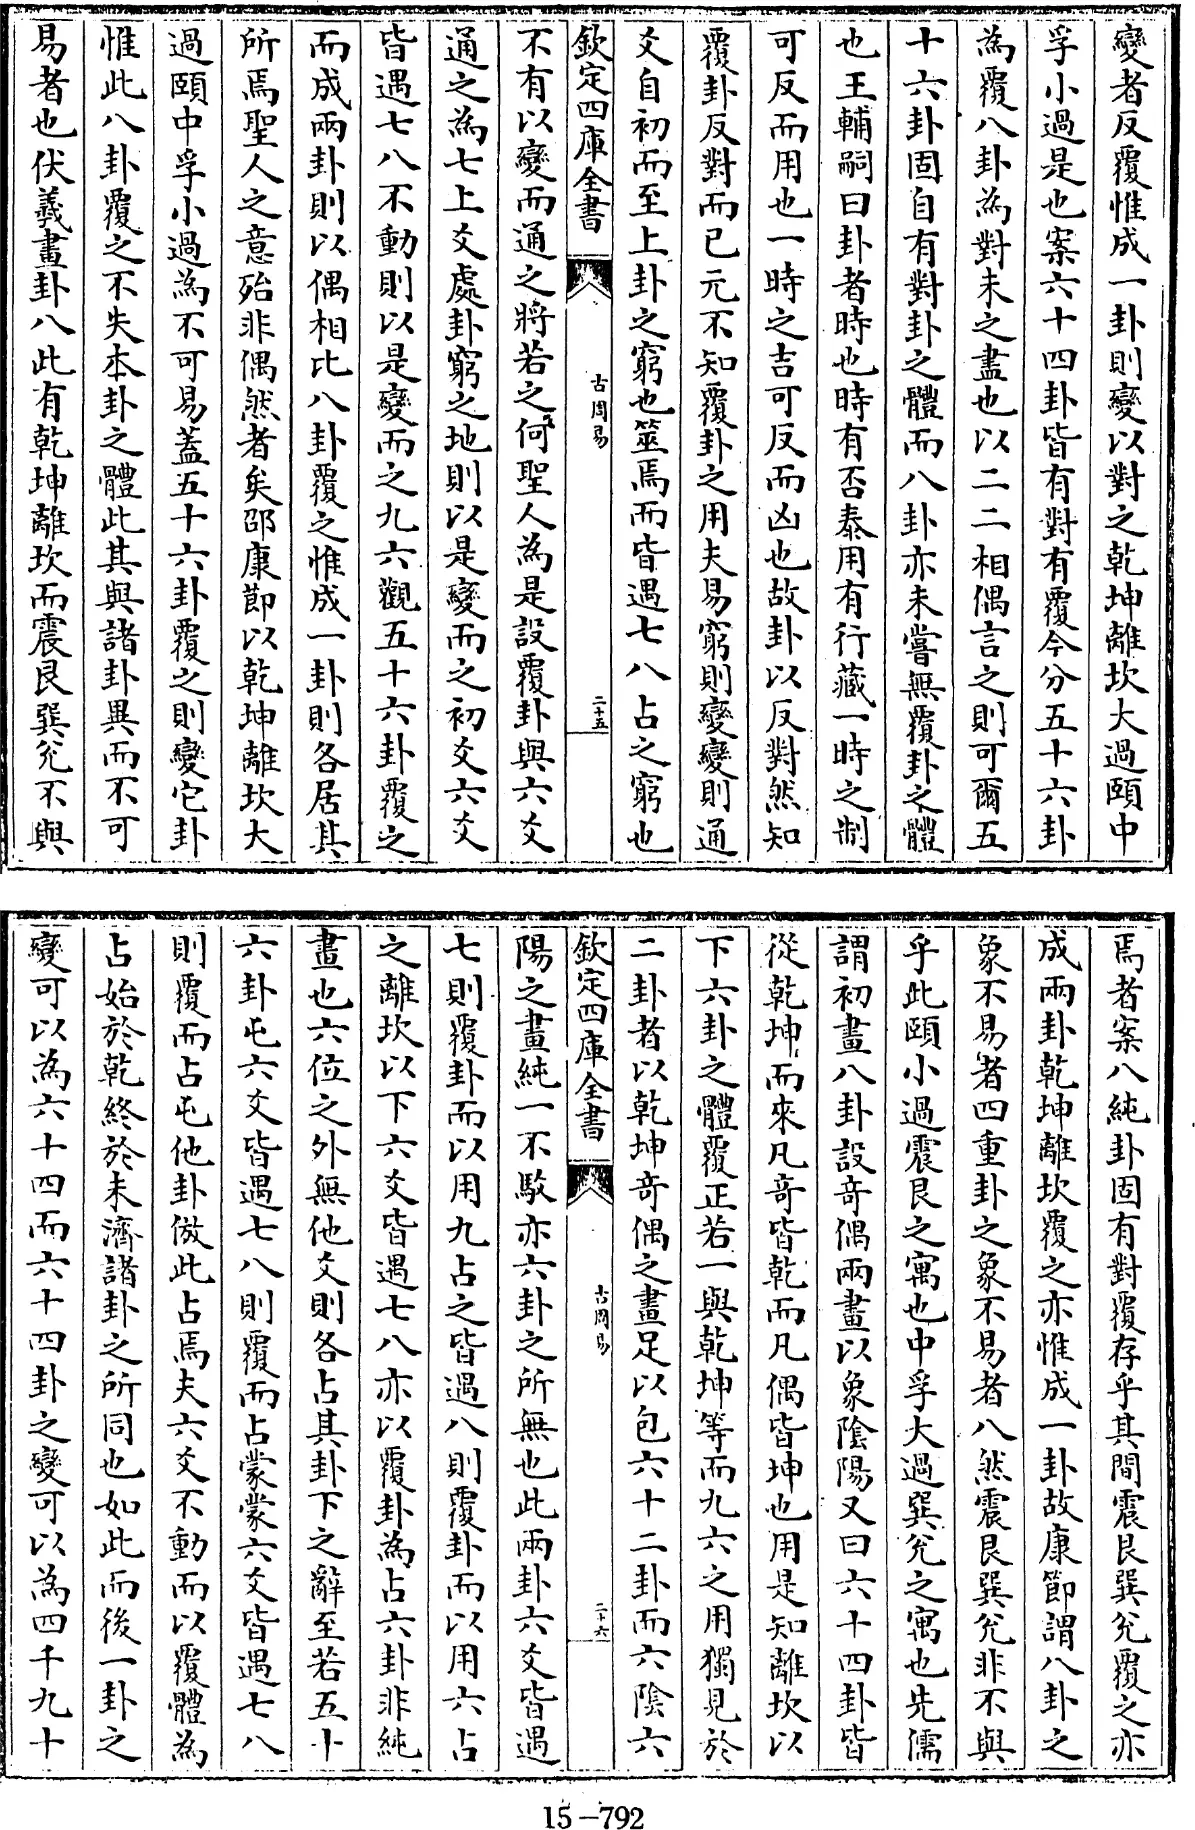 變者反覆惟成一卦則變以對之乾坤離坎大過頤中
孚小過是也案六十四卦皆有對有覆今分五十六卦
為覆八卦為對未之盡也以二二相偶言之則可爾五
十六卦固自有對卦之體而八卦亦未嘗無覆卦之體
也王輔嗣曰卦者時也時有否泰用有行藏一時之制
可反而用也一時之吉可反而凶也故卦以反對然知
覆卦反對而已元不知覆卦之用夫易窮則變變則通
爻自初而至上卦之窮也筮焉而皆遇七八占之窮也
欽定四庫全書
古周易
二十五
不有以變而通之將若之何聖人為是設覆卦與六爻
通之為七上爻處卦窮之地則以是變而之初爻六爻
皆遇七八不動則以是變而之九六觀五十六卦覆之
而成兩卦則以偶相比八卦覆之惟成一卦則各居其
所焉聖人之意殆非偶然者矣邵康節以乾坤離坎大
過頤中孚小過為不可易蓋五十六卦覆之則變它卦
惟此八卦覆之不失本卦之體此其與諸卦異而不可
易者也伏羲畫卦八此有乾坤離坎而震艮巽兌不與
焉者案八純卦固有對覆存乎其間震艮巽兌覆之亦
成兩卦乾坤離坎覆之亦惟成一卦故康節謂八卦之
象不易者四重卦之象不易者八然震艮巽兌非不與
乎此頤小過震艮之寓也中孚大過巽兌之寓也先儒
謂初畫八卦設奇偶兩畫以象陰陽又曰六十四卦皆
從乾坤而來凡奇皆乾而凡偶皆坤也用是知離坎以
下六卦之體覆正若一與乾坤等而九六之用獨見於
二卦者以乾坤奇偶之畫足以包六十二卦而六陰六
欽定四庫全書
古周易
二十六
陽之畫純一不駁亦六卦之所無也此兩卦六爻皆遇
七則覆卦而以用九占之皆遇八則覆卦而以用六占
之離坎以下六爻皆遇七八亦以覆卦為占六卦非純
畫也六位之外無他爻則各占其卦下之辭至若五十
六卦屯六爻皆遇七八則覆而占蒙蒙六爻皆遇七八
則覆而占屯他卦倣此占焉夫六爻不動而以覆體為
占始於乾終於未濟諸卦之所同也如此而後一卦之
變可以為六十四而六十四卦之變可以為四千九十
15-792